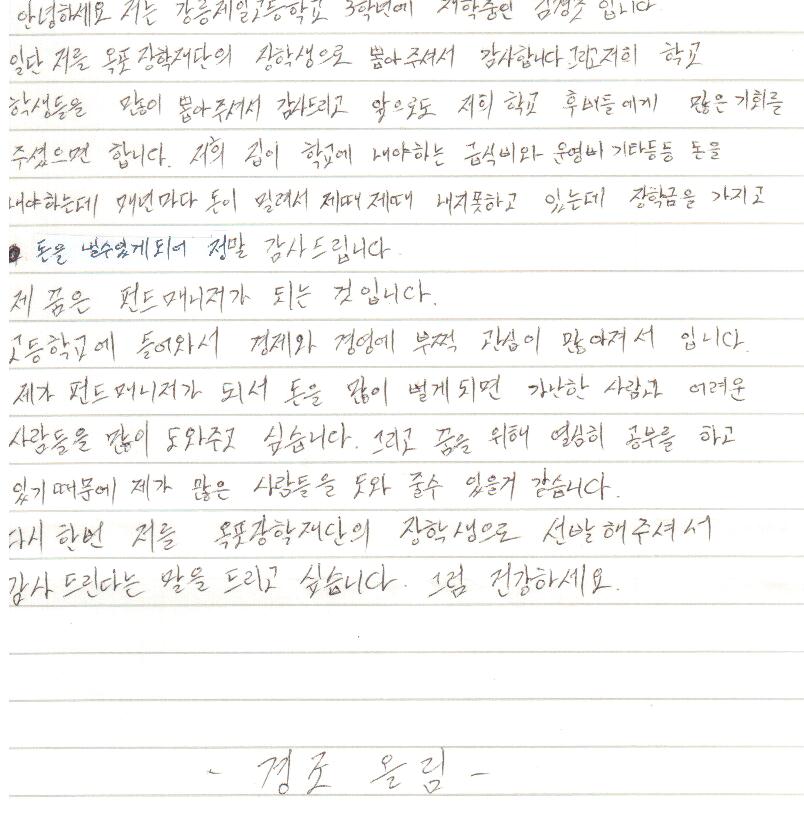 안녕하세요 저는 강릉제일고등학교 3학년에 재학중인 김경조 입니다
일단 저를 옥포 장학재단의 장학생으로 뽑아주셔서 감사합니다 그리고 저희 학교
학생들을 많이 뽑아주셔서 감사드리고 앞으로도 저희 학교 후배들에게 많은 기회를
주셨으면 합니다. 저희 집이 학교에 내야하는 급식비와 운영비 기타등등 돈을
내야하는데 매년마다 돈이 밀려서 제때 제때 내지못하고 있는데 장학금을 가지고
돈을 낼수있게되어 정말 감사드립니다.
제 꿈은 펀드매니저가 되는 것입니다.
고등학교에 들어와서 경제와 경영에 부쩍 관심이 많아져서 입니다.
제가 펀드매니저가 되서 돈을 많이 벌게되면 가난한 사람과 어려운
사람들을 많이 도와주고 싶습니다. 그리고 꿈을 위해 열심히 공부를 하고
있기때문에 제가 많은 사람들을 도와 줄수 있을거 같습니다.
다시 한번 저를 옥포장학재단의 장학생으로 선발해주셔서
감사 드린다는 말을 드리고 싶습니다. 그럼 건강하세요.
- 경조 올림 -